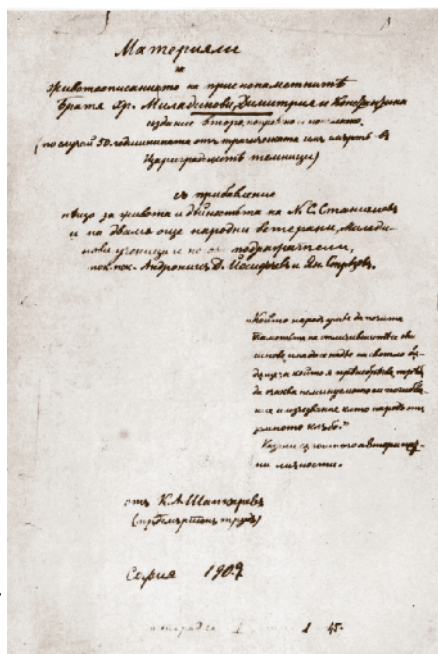 Материяли
за
животоописанието на приснопаметнитѣ
Братя Хр. Миладинови, Димитрия и Константина
издание второ, поправено и
(по случай 50. годишнината отъ трагическата имъ смърть въ
Цариградскитѣ темници)
съ прибавление
нѣщо за живота и дѣйностьта на К. С. Станишевъ
и по двама още народни ветерани, Милади-
нови ученици и подражатели,
пок. пок. Андроникъ Д. Йосифчевъ и Ян. Стрезовъ.
„Който народъ умѣе да почита
паметьта на отличившитѣ се свои
синове, има да се надѣе на свѣтло бѫ-
дѫще, а който я пренебрѣгва, трѣбва
да очаква неминуемото си погибва-
ние и изчезвание като народъ отъ
земното кълбо."
отъ К. А. Шапкаревъ
(предсмъртенъ трудъ)
София 1909
1 45.